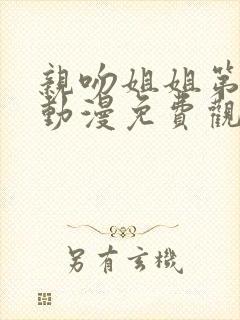 親吻姐姐第
動漫免費觀
另有玄機